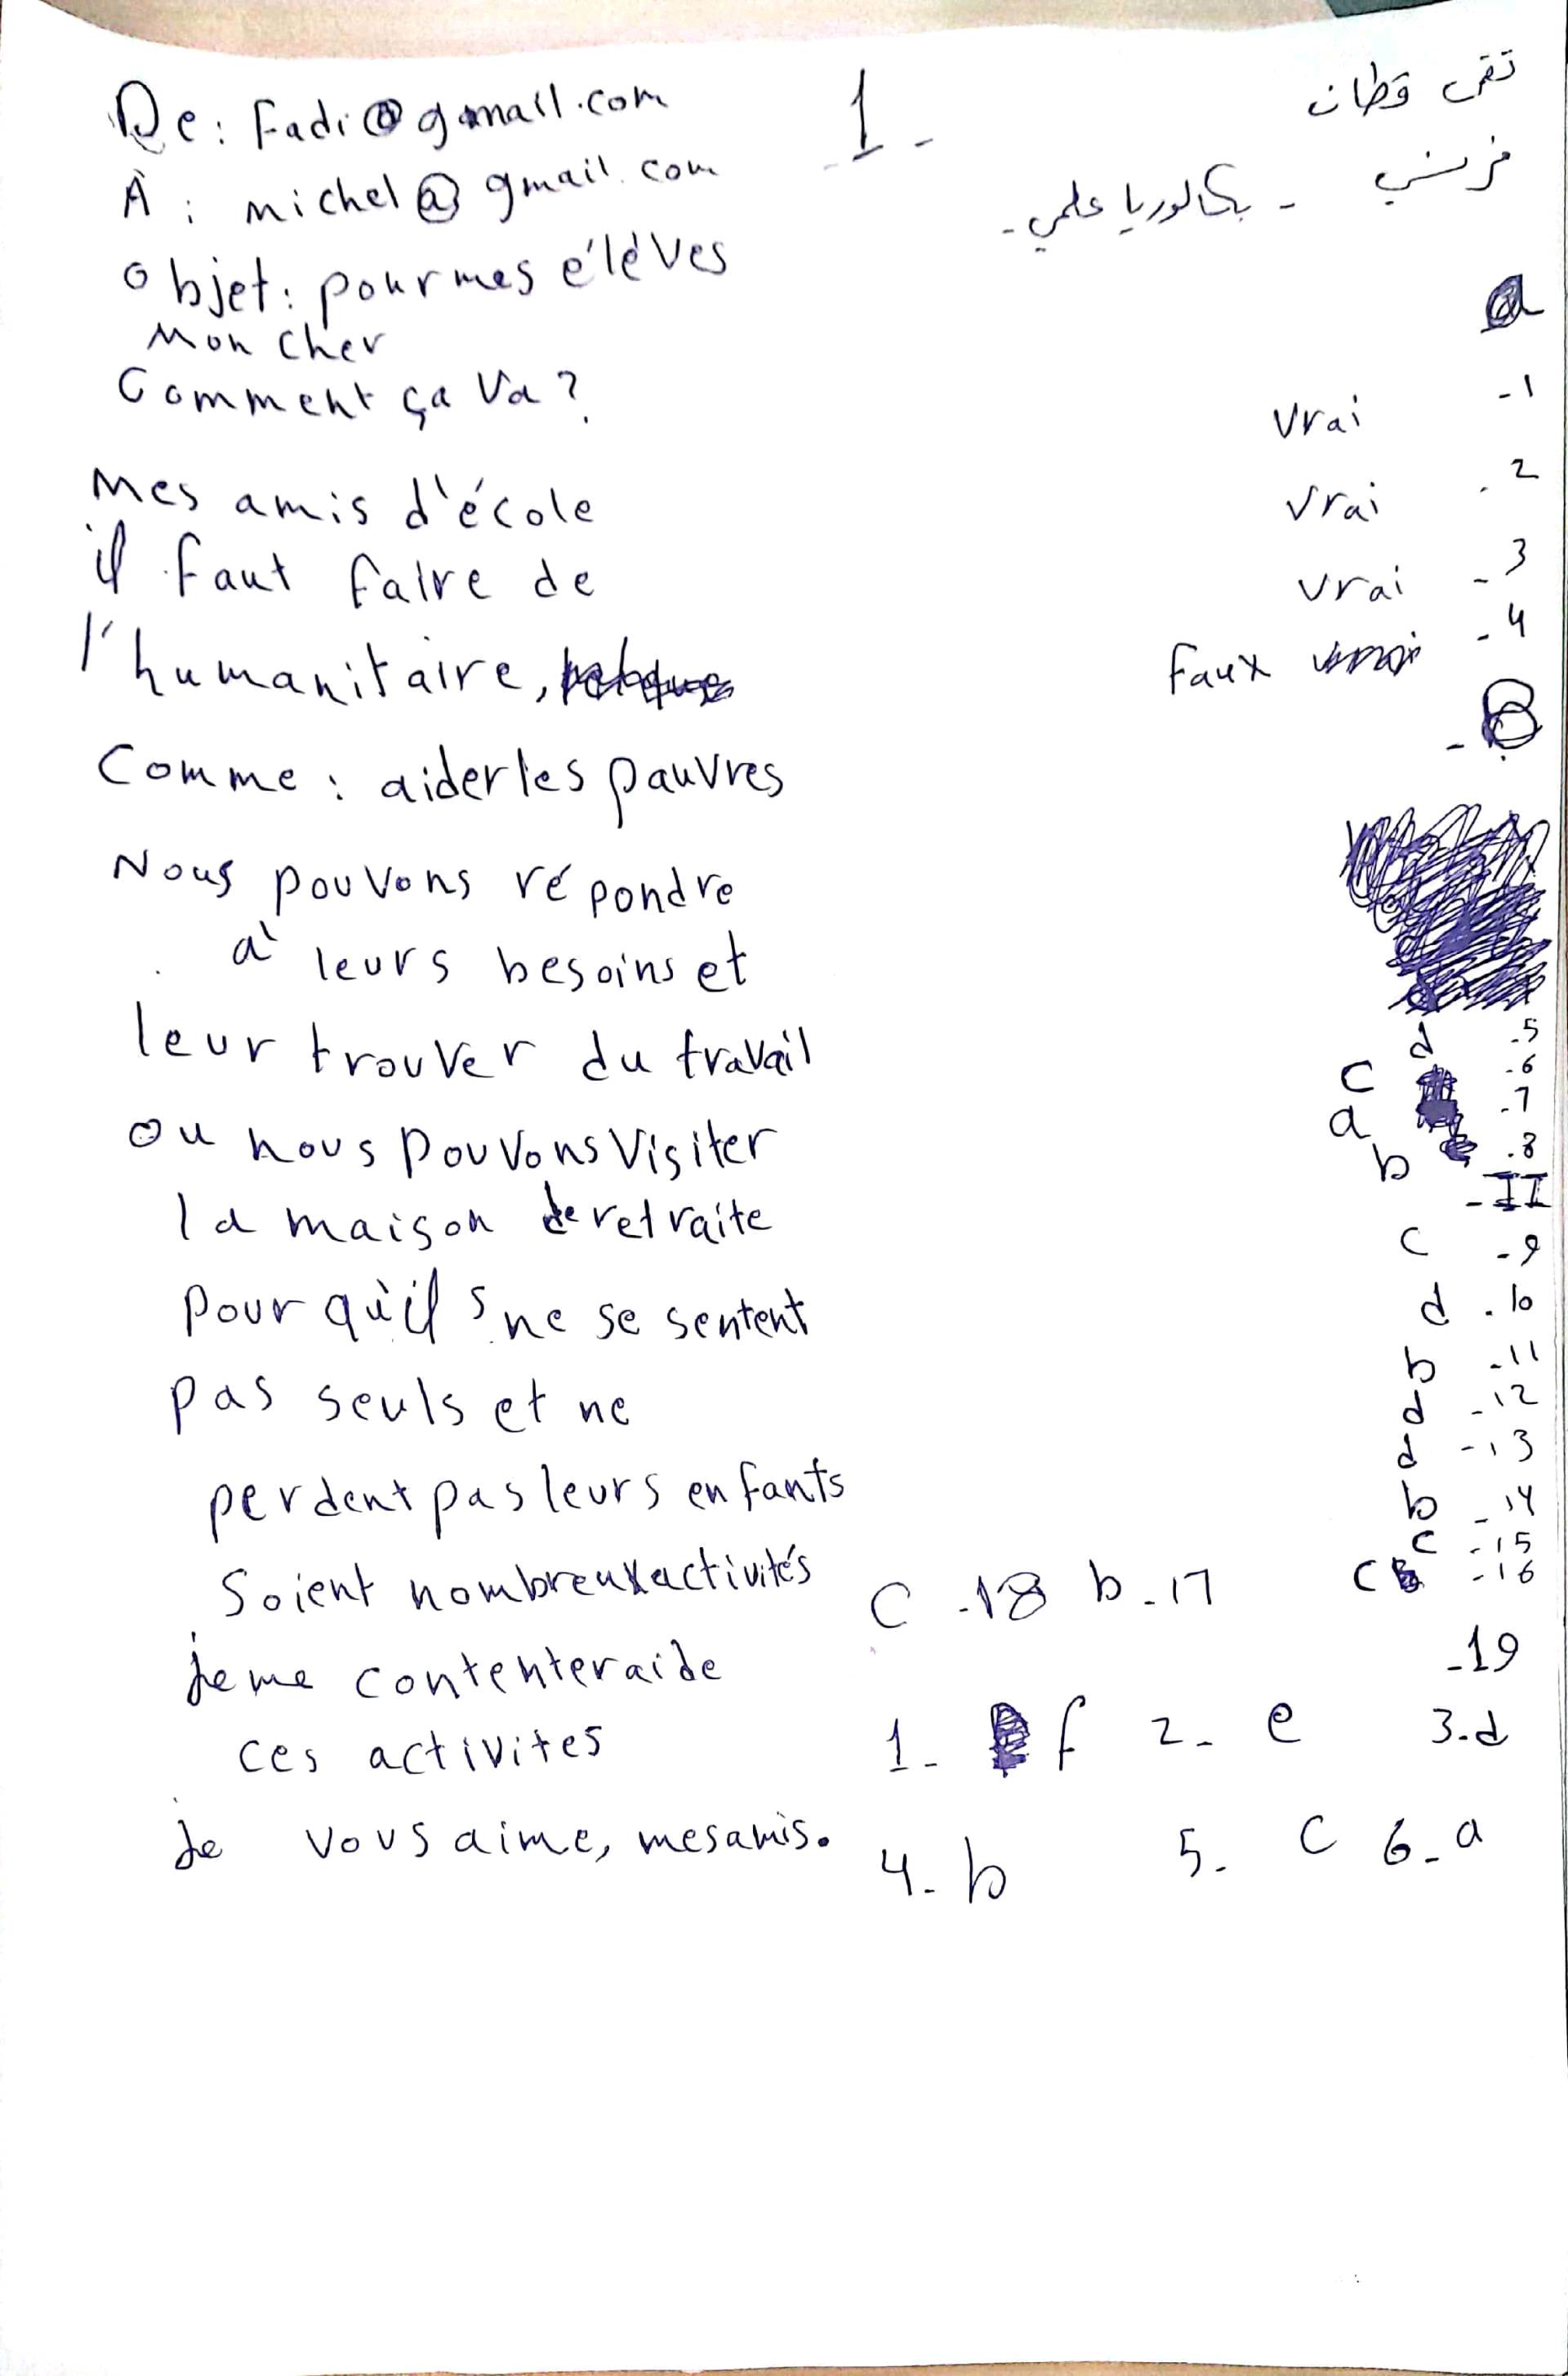 تقى قطان
فرنسي - بكالوريا علمي -
1-
a
1- vrai
2- vrai
3- vrai
4- Faux
B-
5- d
6- c
7- a
8- b
II-
9- c
10- d
11- b
12- d
13- d
14- b
15- c
16- c
17- b 18- c
19-
1- f 2- e 3-d
4- b 5- c 6- a
De: Fadi@gmail.com
À : michel@gmail.com
objet: pour mes éléves
Mon cher
Comment ça va?
Mes amis d'école
il faut faire de
l'humanitaire,
Comme : aider les pauvres
Nous pouvons répondre
à leurs besoins et
leur trouver du travail
ou nous pouvons visiter
la maison de retraite
pour qu'ils ne se sentent
pas seuls et ne
perdent pas leurs enfants
Soient nombreux activités
je me contenterai de
ces activites
Je vous aime, mes amis.